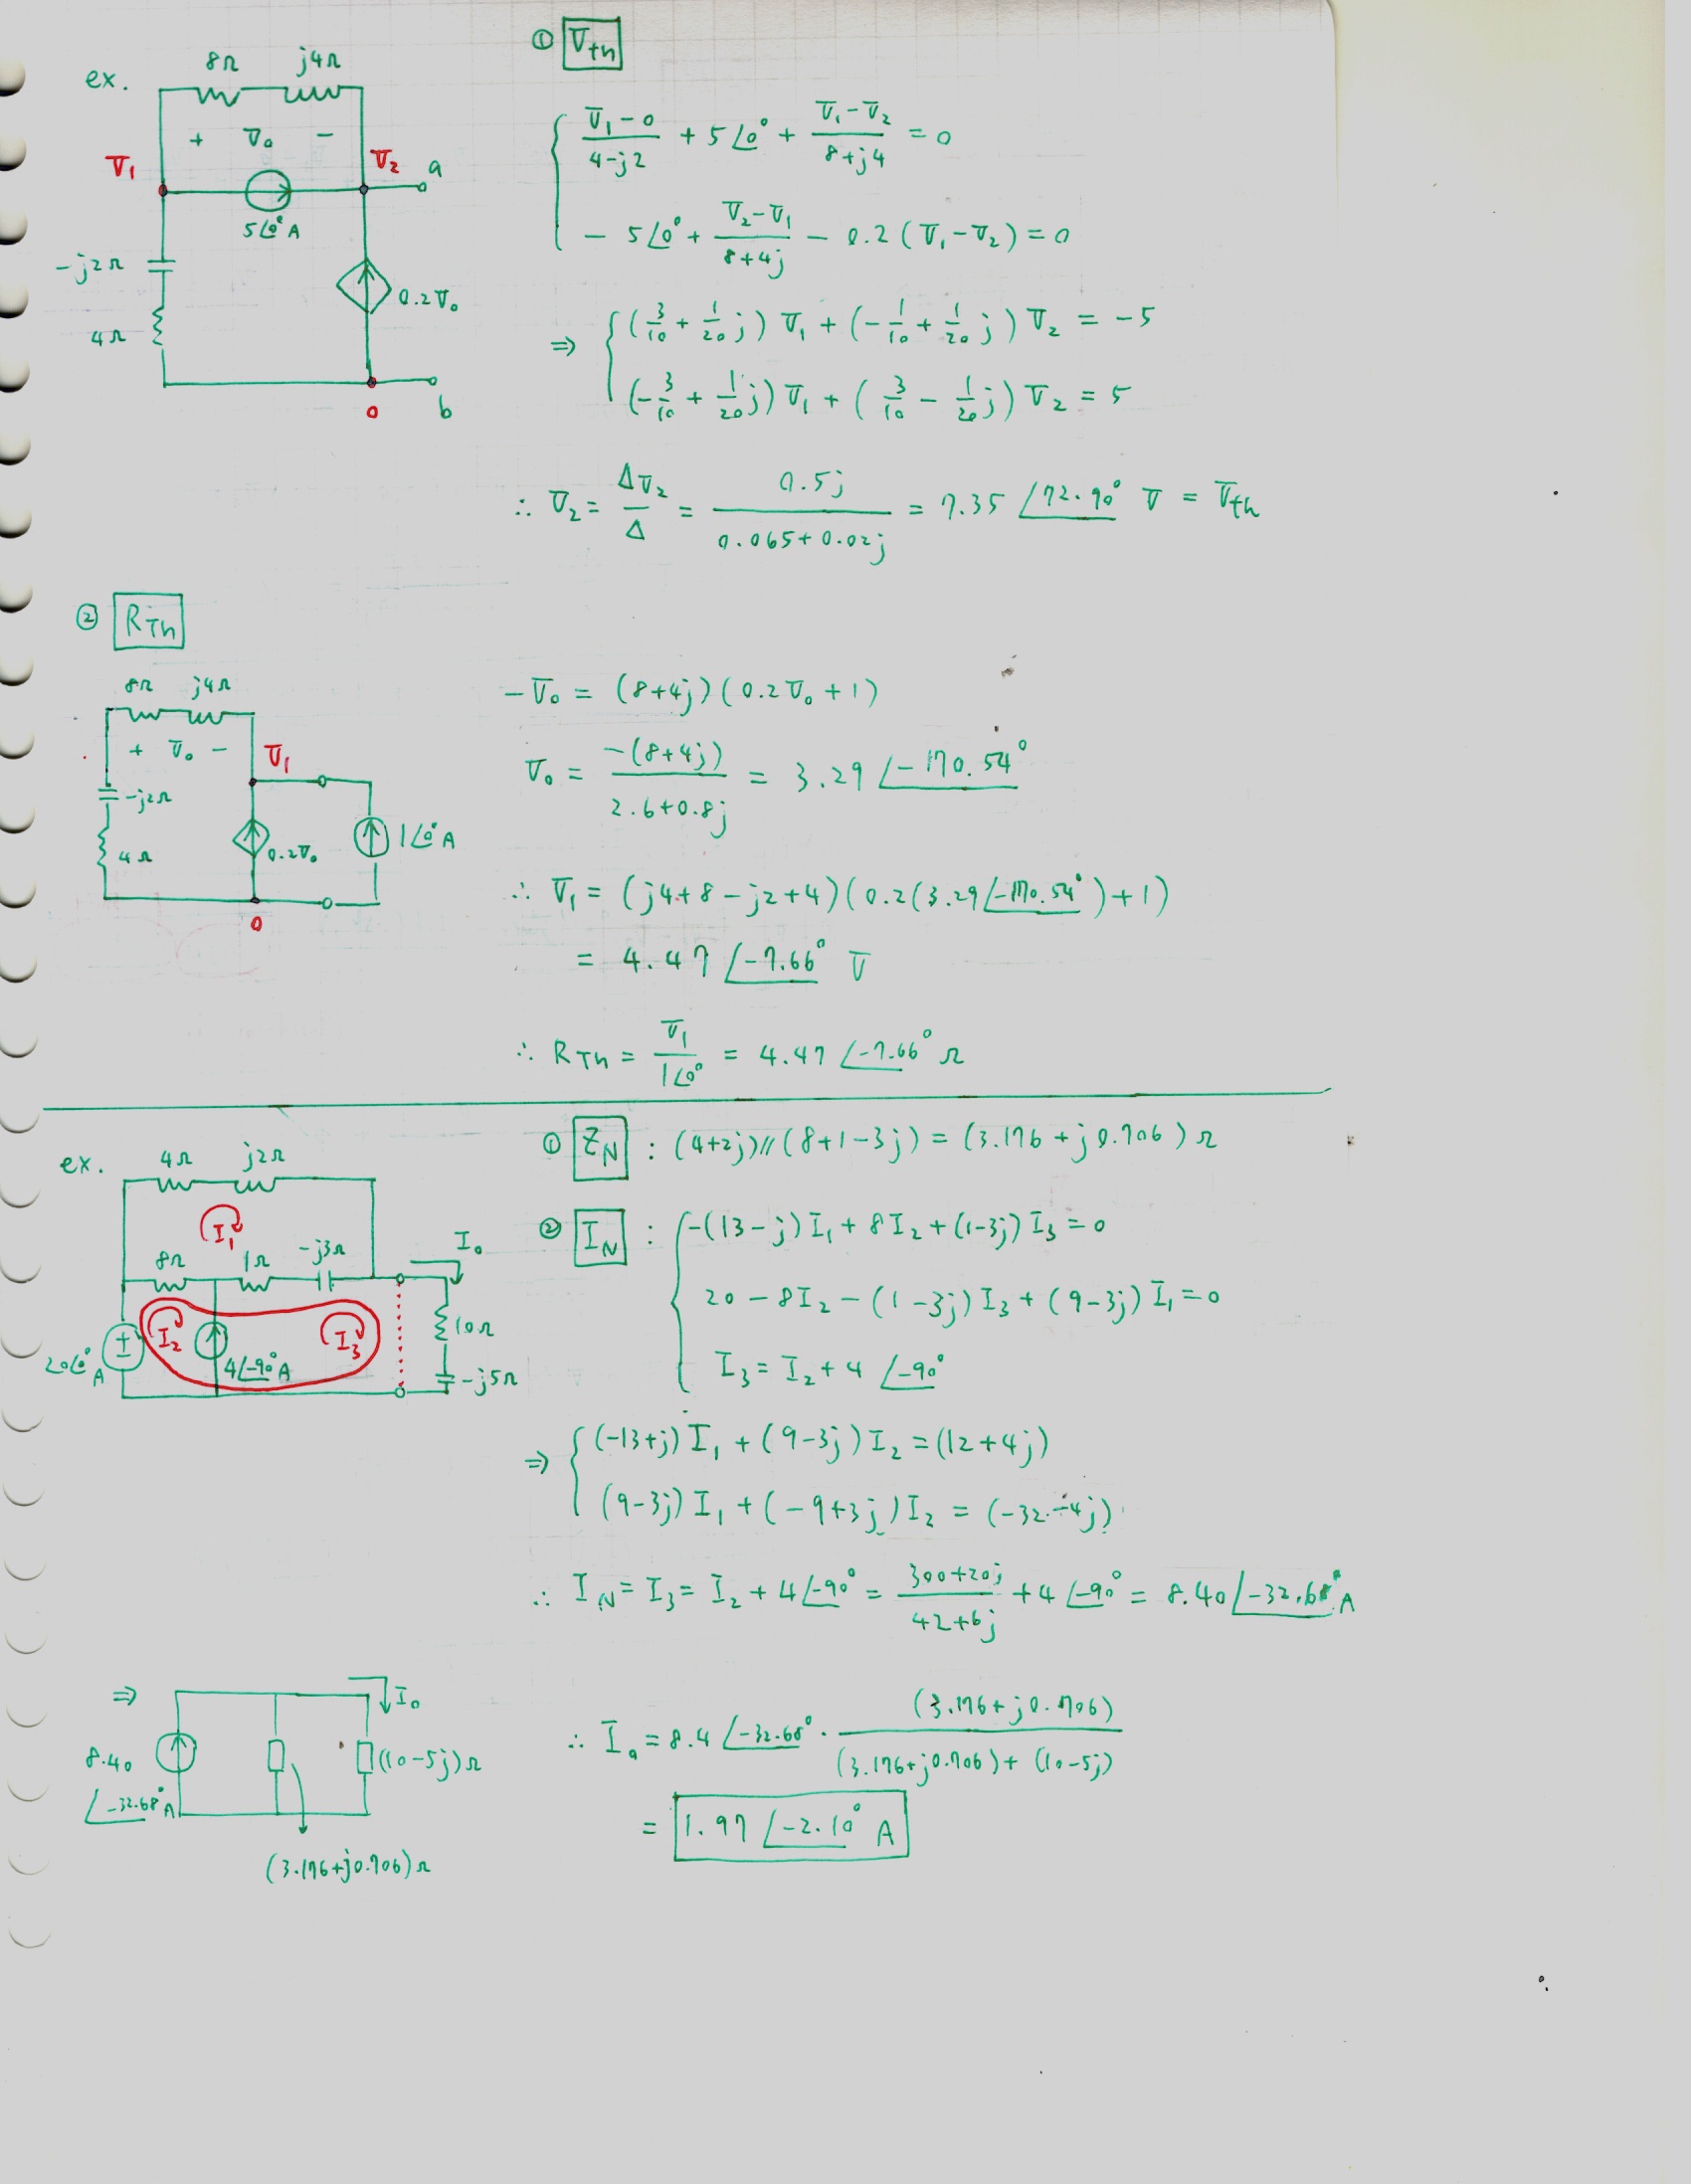 ex.
8Ω j4Ω
+ V₀ −
V₁
V₂ a
5∠0° A
-j2Ω
4Ω
0.2V₀
0 b
① Vth
(V₁-0)/(4-j2) + 5∠0° + (V₁-V₂)/(8+j4) = 0
- 5∠0° + (V₂-V₁)/(8+4j) - 0.2(V₁-V₂) = 0
⇒ (3/10 + 1/20 j) V₁ + (-1/10 + 1/20 j) V₂ = -5
(-3/10 + 1/20 j) V₁ + (3/10 - 1/20 j) V₂ = 5
∴ V₂ = ΔV₂/Δ = 0.5j/(0.065+0.02j) = 7.35 ∠72.90° V = Vth
② RTh
8Ω j4Ω
+ V₀ − V₁
-j2Ω
4Ω 0.2V₀ 1∠0° A
0
-V₀ = (8+4j)(0.2V₀+1)
V₀ = -(8+4j)/(2.6+0.8j) = 3.29 ∠-170.54°
∴ V₁ = (j4+8-j2+4)(0.2(3.29∠-170.54°)+1)
= 4.47 ∠-7.66° V
∴ RTh = V₁/1∠0° = 4.47 ∠-7.66° Ω
ex.
4Ω j2Ω
I₁
8Ω 1Ω -j3Ω I₀
I₂ I₃ 10Ω
20∠0° A 4∠-90° A -j5Ω
① ZN : (4+2j)//(8+1-3j) = (3.176+j0.706)Ω
② IN : -(13-j)I₁ + 8I₂ + (1-3j)I₃ = 0
20 - 8I₂ - (1-3j)I₃ + (9-3j)I₁ = 0
I₃ = I₂ + 4 ∠-90°
⇒ (-13+j)I₁ + (9-3j)I₂ = (12+4j)
(9-3j)I₁ + (-9+3j)I₂ = (-32-4j)
∴ IN = I₃ = I₂ + 4∠-90° = (300+20j)/(42+6j) + 4∠-90° = 8.40∠-32.68° A
⇒ I₀
8.40 ∠-32.68° A (10-5j)Ω
(3.176+j0.706)Ω
∴ I₀ = 8.4∠-32.68° · (3.176+j0.706)/((3.176+j0.706)+(10-5j))
= 1.97 ∠-2.10° A